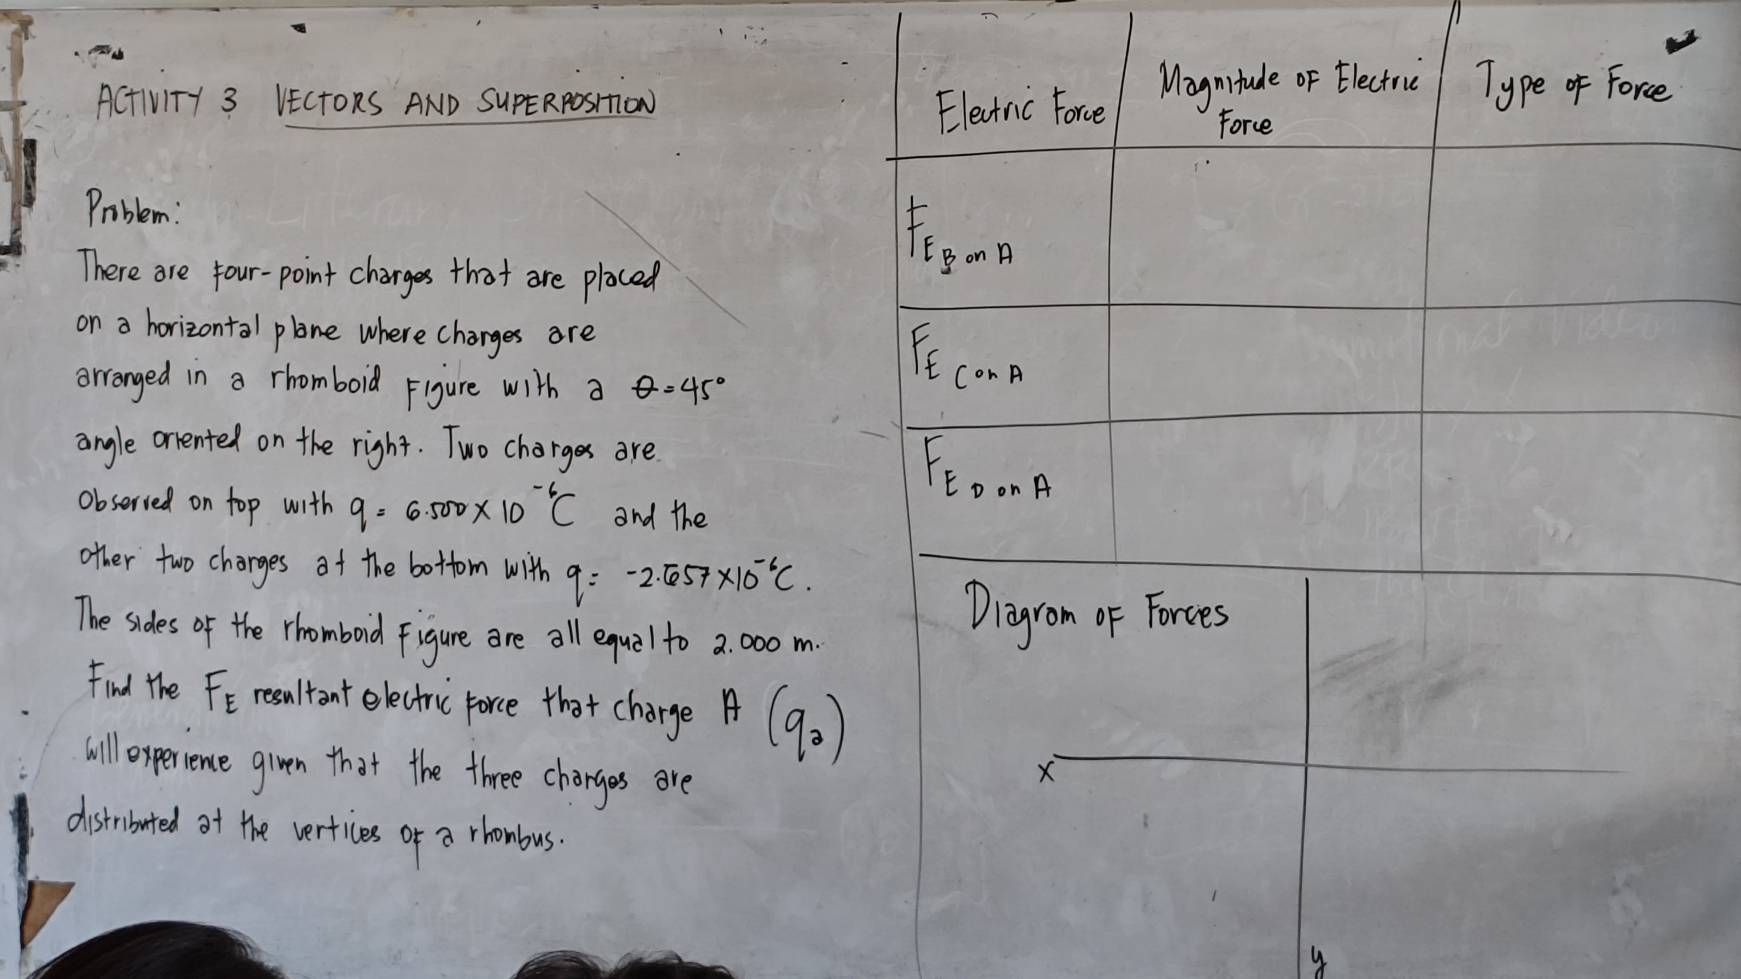 ACTIVITY 3 VECTORS AND SUPERPOSITION
Problem:
There are four-point charges that are placed
on a horizontal plane where charges are
arranged in a rhomboid Figure with a θ=45°
angle oriented on the right. Two charges are
Observed on top with q = 6.500 x 10⁻⁶C and the
other two charges at the bottom with q = -2.657 x10⁻⁶C.
The sides of the rhomboid Figure are all equal to 2.000 m.
Find the FE resultant electric force that charge A (qa)
will experience given that the three charges are
distributed at the vertices of a rhombus.
Electric Force
Magnitude of Electric
Force
Type of Force
FE B on A
FE C on A
FE D on A
Diagram of Forces
x
y